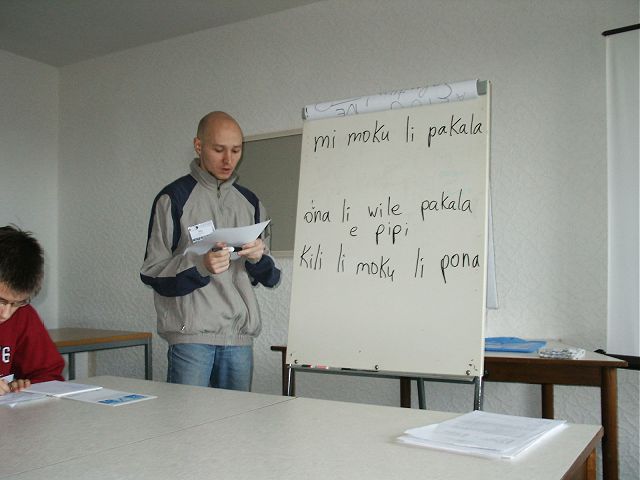 mi moku li pakala
ona li wile pakala
e pipi
kili li moku li pona